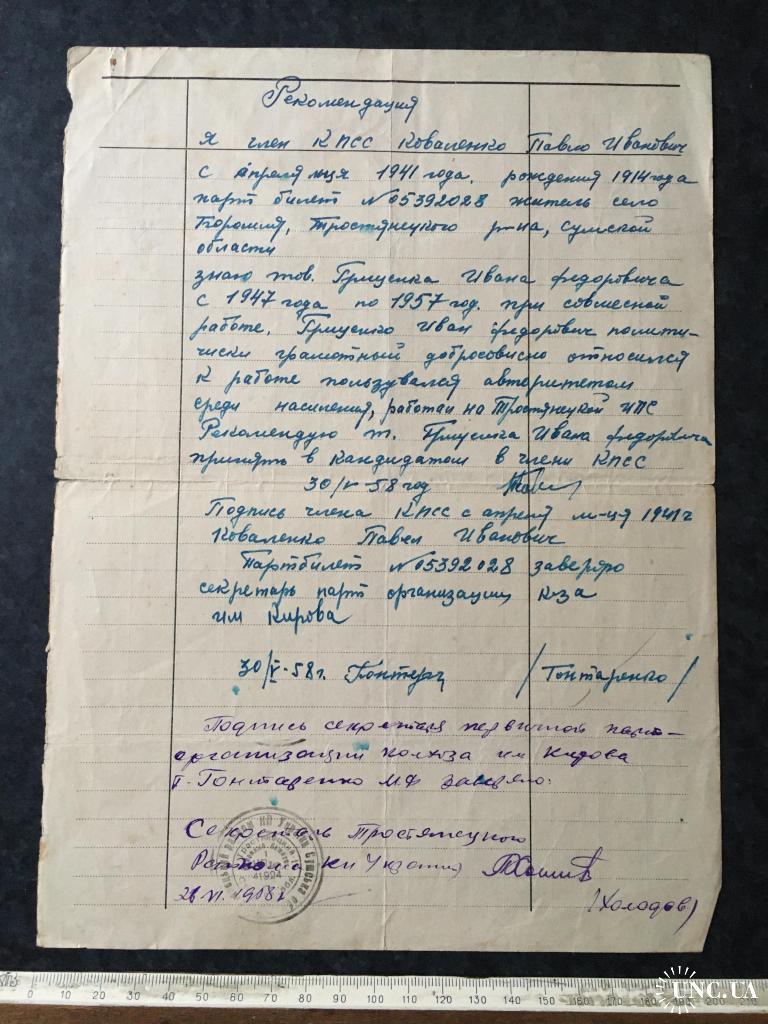 Рекомендация
Я член КПСС Коваленко Павло Иванович
с апреля м-ця 1941 года. рождения 1914 года
парт билет №05392028 житель село
Боромля, Тростянецкого р-на, Сумской
области
знаю тов. Грищенка Ивана Федоровича
с 1947 года по 1957 год. при совмесной
работе. Грищенко Иван Федорович полити-
чиски грамотный добросовисно относился
к работе пользувался авторитетом
среди насиления, работая на Тростянецкой
Рекомендую т. Грищенка Ивана Федоровича
принять в кандидатом в члени КПСС
30/V-58 год
Подпись члена КПСС с апреля м-ця 1941 г
Коваленко Павел Иванович
Партбилет №05392028 заверяю
секретарь парт организации к-за
им Кирова
30/V-58 г. /Гонтаренко/
Подпись секретаря первичной парт-
организации колхоза им Кирова
т. Гонтаренко М.Ф заверяю.
Секретарь Тростянецкого
Райкома КП Украины
VI. 1958 г (Холодов)
0 10 20 30 40 50 60 70 80 90 100 110 120 130 140 150 160 170 180 190 200 210
UNC.UA